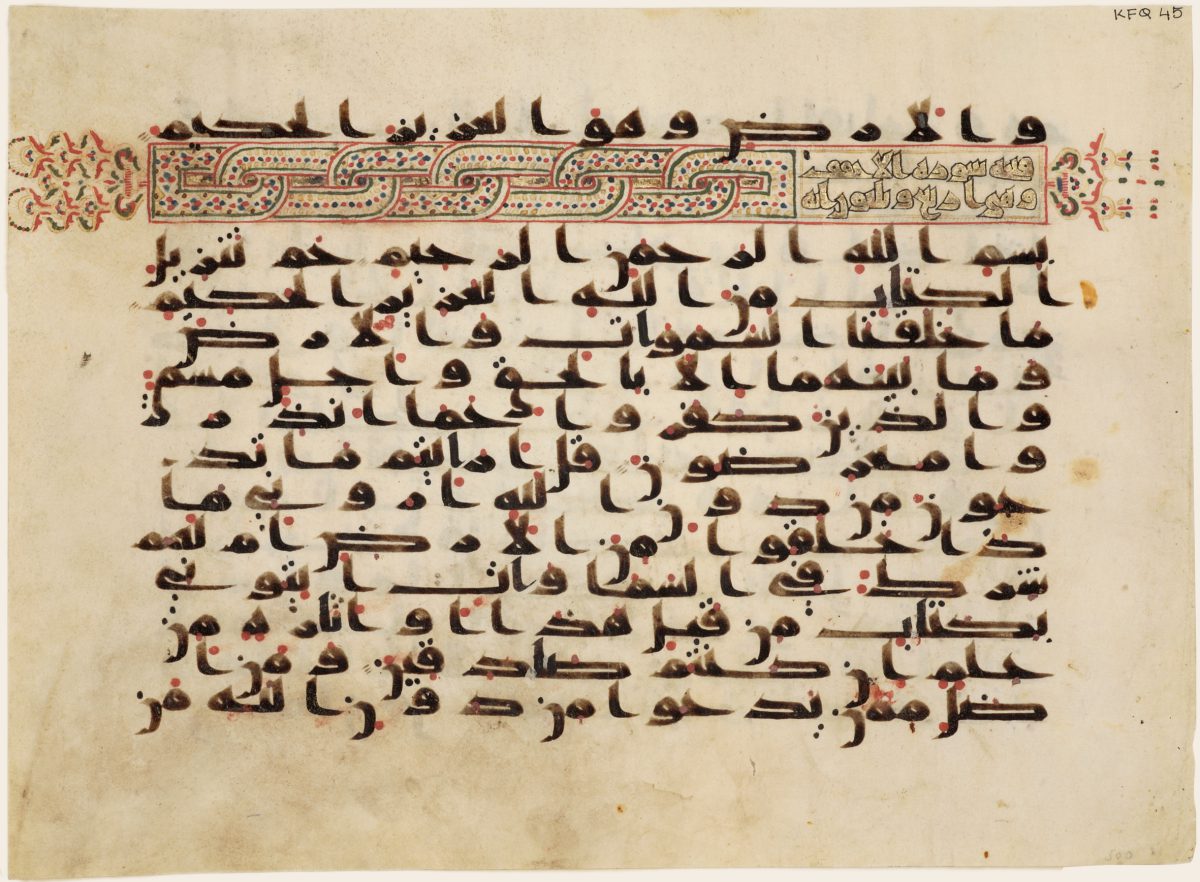 والارض وهو العزيز الحكيم
فتحه سوره الاحقف
وهى اربع وثلثون ايه
بسم الله الرحمن الرحيم حم تنزيل
الكتاب من الله العزيز الحكيم
ما خلقنا السموات والارض
وما بينهما الا بالحق واجل مسمى
والذين كفروا عما انذر
وا معرضون قل ارايتم ما تد
عون من دون الله ارونى ما
ذا خلقوا من الارض ام لهم
شرك في السموات ايتونى
بكتاب من قبل هذا او اثارة من
علم ان كنتم صادقين ومن ا
ضل ممن يدعوا من دون الله من
KFQ 45